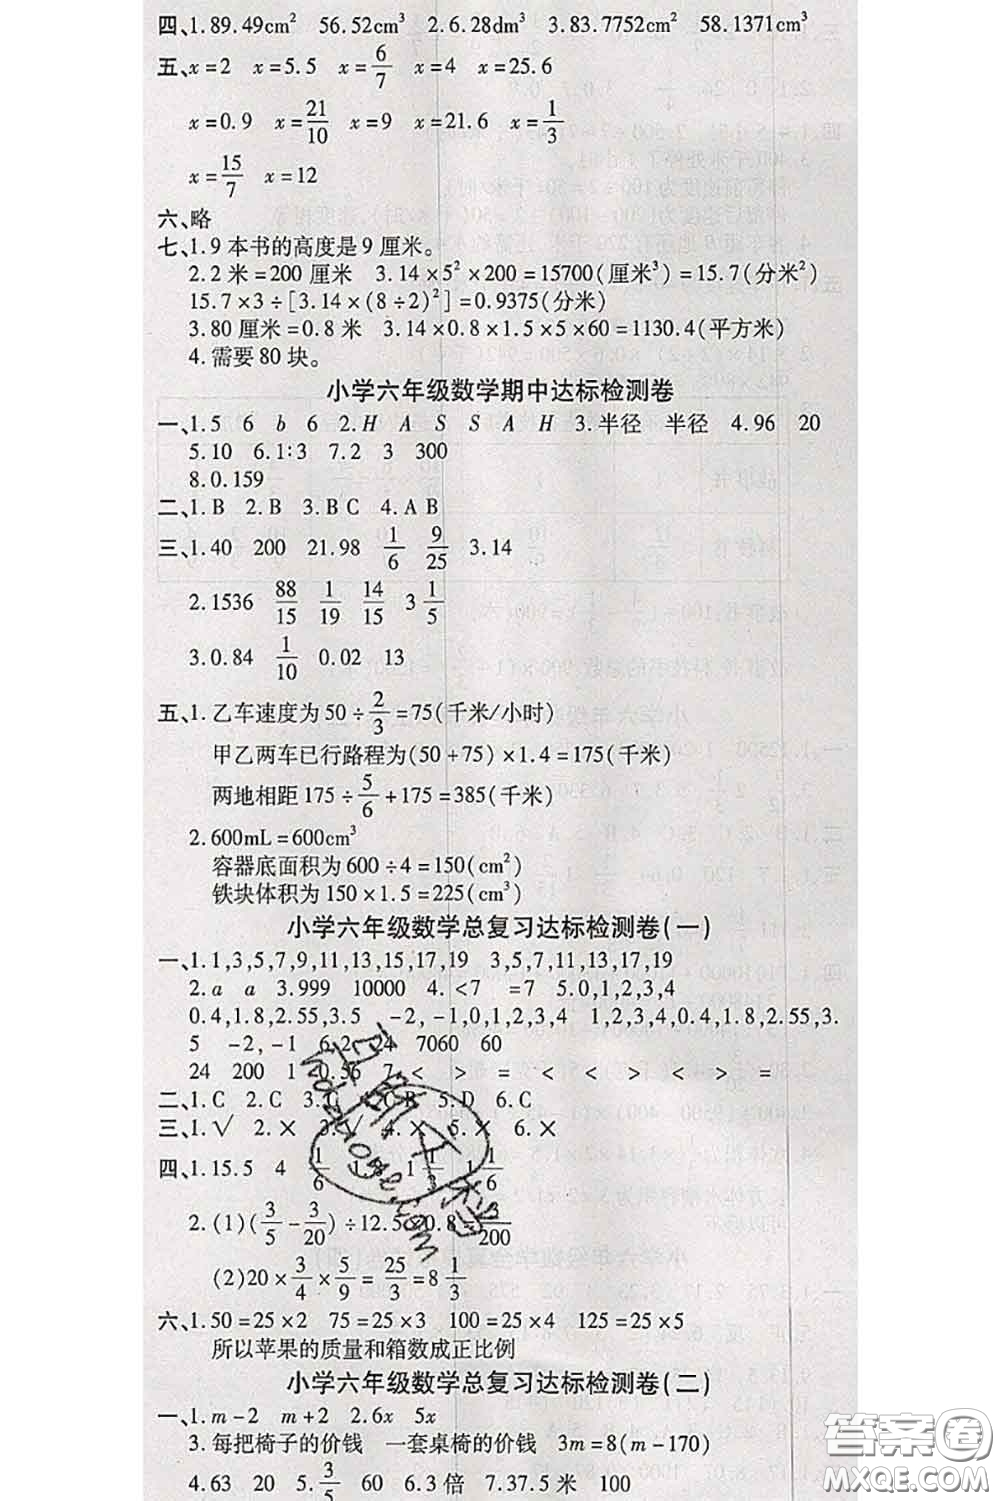 四、1.89.49cm² 56.52cm³ 2.6.28dm³ 3.83.7752cm² 58.1371cm³
五、x=2 x=5.5 x=6/7 x=4 x=25.6
x=0.9 x=21/10 x=9 x=21.6 x=1/3
x=15/7 x=12
六、略
七、1.9本书的高度是9厘米。
2.2米=200厘米 3.14×5²×200=15700(厘米³)=15.7(分米²)
15.7×3÷[3.14×(8÷2)²]=0.9375(分米)
3.80厘米=0.8米 3.14×0.8×1.5×5×60=1130.4(平方米)
4.需要80块。
小学六年级数学期中达标检测卷
一、1.5 6 b 6 2.H A S S A H 3.半径 半径 4.96 20
5.10 6.1:3 7.2 3 300
8.0.159
二、1.B 2.B 3.B C 4.A B
三、1.40 200 21.98 1/6 9/25 3.14
2.1536 88/15 1/19 14/15 3 1/5
3.0.84 1/10 0.02 13
五、1.乙车速度为50÷2/3=75(千米/小时)
甲乙两车已行路程为(50+75)×1.4=175(千米)
两地相距175÷5/6+175=385(千米)
2.600mL=600cm³
容器底面积为600÷4=150(cm²)
铁块体积为150×1.5=225(cm³)
小学六年级数学总复习达标检测卷(一)
一、1.1,3,5,7,9,11,13,15,17,19 3,5,7,11,13,17,19
2.a a 3.999 10000 4.<7 =7 5.0,1,2,3,4
0.4,1.8,2.55,3.5 -2,-1,0,1,2,3,4 1,2,3,4,0.4,1.8,2.55,3.
5 -2,-1 6.2 24 7060 60
24 200 1 0.56 7.< > = < < > < > =
二、1.C 2.C 3.C 4.C B 5.D 6.C
三、1.√ 2.× 3.√ 4.× 5.× 6.×
四、1.15.5 4 1/6 1.8 1 1/3 1 1/6
2.(1)(3/5-3/20)÷12.5 0.8 3/200
(2)20×3/4×5/9=25/3=8 1/3
六、1.50=25×2 75=25×3 100=25×4 125=25×5
所以苹果的质量和箱数成正比例
小学六年级数学总复习达标检测卷(二)
一、1.m-2 m+2 2.6x 5x
3.每把椅子的价钱 一套桌椅的价钱 3m=8(m-170)
4.63 20 5.3/5 60 6.3倍 7.37.5米 100
答案圈
MXQE.COM